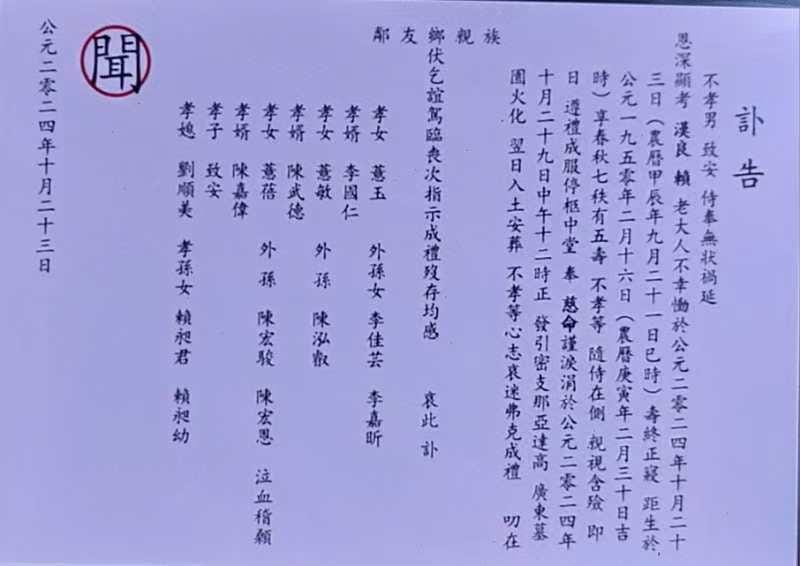 訃告
不孝男 致安 侍奉無狀禍延
恩深顯考 漢良 賴 老大人不幸慟於公元二零二四年十月二十
三日（農曆甲辰年九月二十一日巳時）壽終正寢 距生於
公元一九五零年二月十六日（農曆庚寅年二月三十日吉
時）享春秋七秩有五壽 不孝等 隨侍在側 親視含殮 即
日 遵禮成服停柩中堂 奉 慈命謹淚涓於公元二零二四年
十月二十九日中午十二時正 發引密支那亞達高 廣東墓
園火化 翌日入土安葬 不孝等心志哀迷弗克成禮 叨在
族親鄉友鄰
伏乞誼駕臨喪次指示成禮歿存均感 哀此訃
孝女 蕙玉 外孫女 李佳芸 李嘉昕
孝婿 李國仁
孝女 蕙敏 外孫 陳泓叡
孝婿 陳武德
孝女 蕙蓓 外孫 陳宏駿 陳宏恩 泣血稽顙
孝婿 陳嘉偉
孝子 致安
孝媳 劉順美 孝孫女 賴昶君 賴昶幼
聞
公元二零二四年十月二十三日